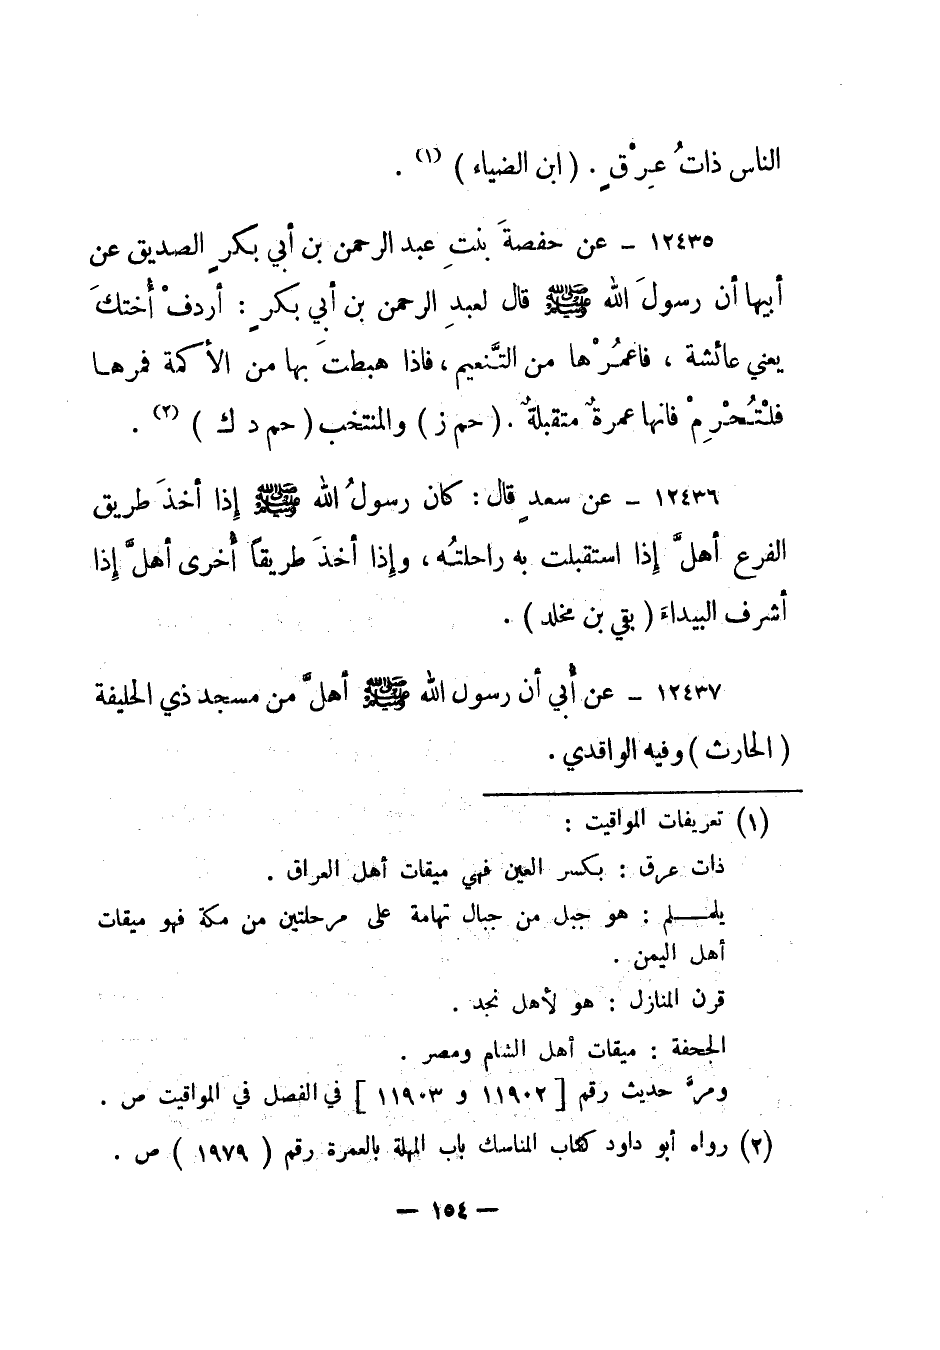 الناس ذاتُ عِرْقٍ . ( ابن الضياء ) (١) .
١٢٤٣٥ ـ عن حفصةَ بنتِ عبد الرحمن بن أبي بكرٍ الصديق عن
أبيها أن رسولَ الله ﷺ قال لعبدِ الرحمن بن أبي بكرٍ : أردفْ أُختكَ
يعني عائشة ، فاعمُرْها من التَّنعيم ، فاذا هبطتَ بها من الأكمة فمرها
فلْتُحْرِمْ فانها عمرةٌ متقبلةٌ . ( حم ز ) والمنتخب ( حم د ك ) (٢) .
١٢٤٣٦ ـ عن سعدٍ قال : كان رسولُ الله ﷺ إِذا أخذَ طريق
الفرع أهلَّ إِذا استقبلت به راحلتُه ، وإِذا أخذَ طريقاً أُخرى أهلَّ إِذا
أشرف البيداءَ ( بقي بن مخلد ) .
١٢٤٣٧ ـ عن أُبي أن رسول الله ﷺ أهلَّ من مسجد ذي الحليفة
( الحارث ) وفيه الواقدي .
(١) تعريفات المواقيت :
ذات عرق : بكسر العين فهي ميقات أهل العراق .
يلمـلم : هو جبل من جبال تهامة على مرحلتين من مكة فهو ميقات
أهل اليمن .
قرن المنازل : هو لأهل نجد .
الجحفة : ميقات أهل الشام ومصر .
ومرَّ حديث رقم [ ١١٩٠٢ و ١١٩٠٣ ] في الفصل في المواقيت ص .
(٢) رواه أبو داود كتاب المناسك باب المهلة بالعمرة رقم ( ١٩٧٩ ) ص .
— ١٥٤ —